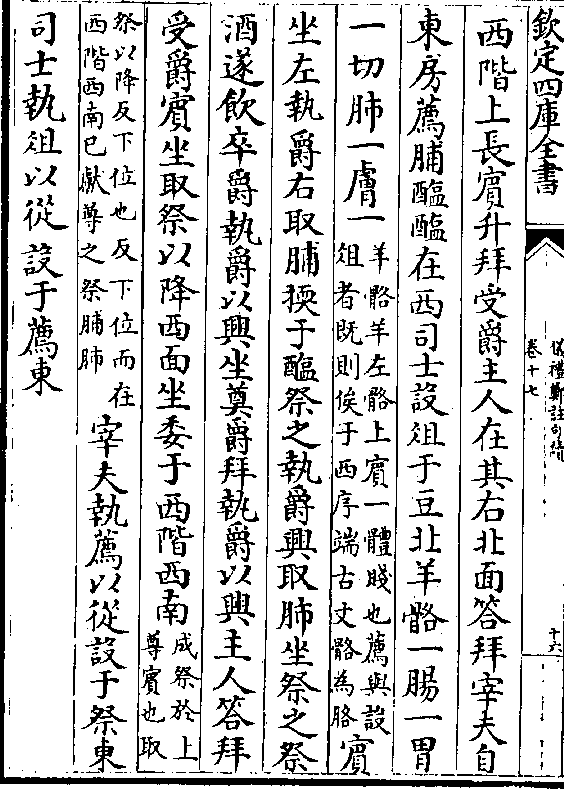 欽定四庫全書
儀禮鄭註句讀
卷十七
十六
西階上長賓升拜受爵主人在其右北面答拜宰夫自
東房薦脯醢醢在西司士設俎于豆北羊骼一腸一胃
一切肺一膚一
羊骼羊左骼上賓一體賤也薦與設
俎者既則俟于西序端古文骼為胳
賓
坐左執爵右取脯㨎于醢祭之執爵興取肺坐祭之祭
酒遂飲卒爵執爵以興坐奠爵拜執爵以興主人答拜
受爵賓坐取祭以降西面坐委于西階西南
成祭於上
尊賓也取
祭以降反下位也反下位而在
西階西南已獻尊之祭脯肺
宰夫執薦以從設于祭東
司士執俎以從設于薦東